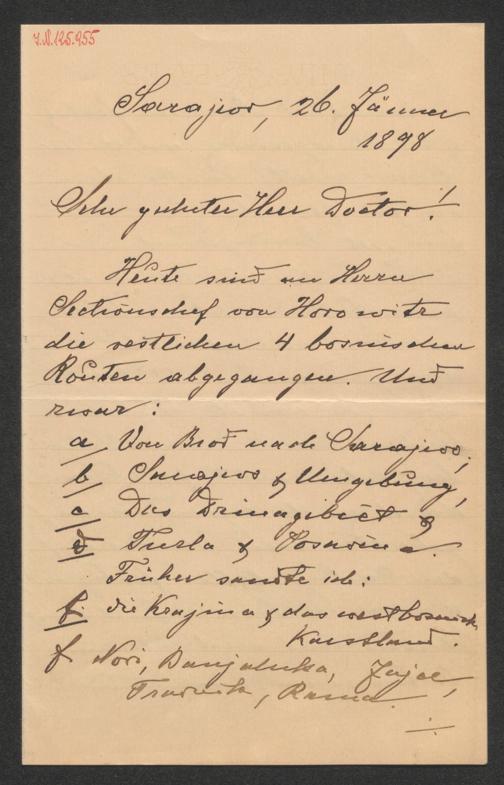 J.N. 125.955
Sarajevo, 26. Jänner
1898
Sehr geehrter Herr Doctor!
Heute sind an Herrn
Sectionschef von Horowitz
die restlichen 4 bosnischen
Routen abgegangen. Und
zwar:
a/ Von Brod nach Sarajevo;
b/ Sarajevo & Umgebung,
c/ Das Drinagebiet &
d/ Tuzla & Posavina.
Früher sandte ich:
f. die Krajina & das westbosnisch.
Karstland.
f. Novi, Banjaluka, Jajce,
Travnik, Rama.
./.